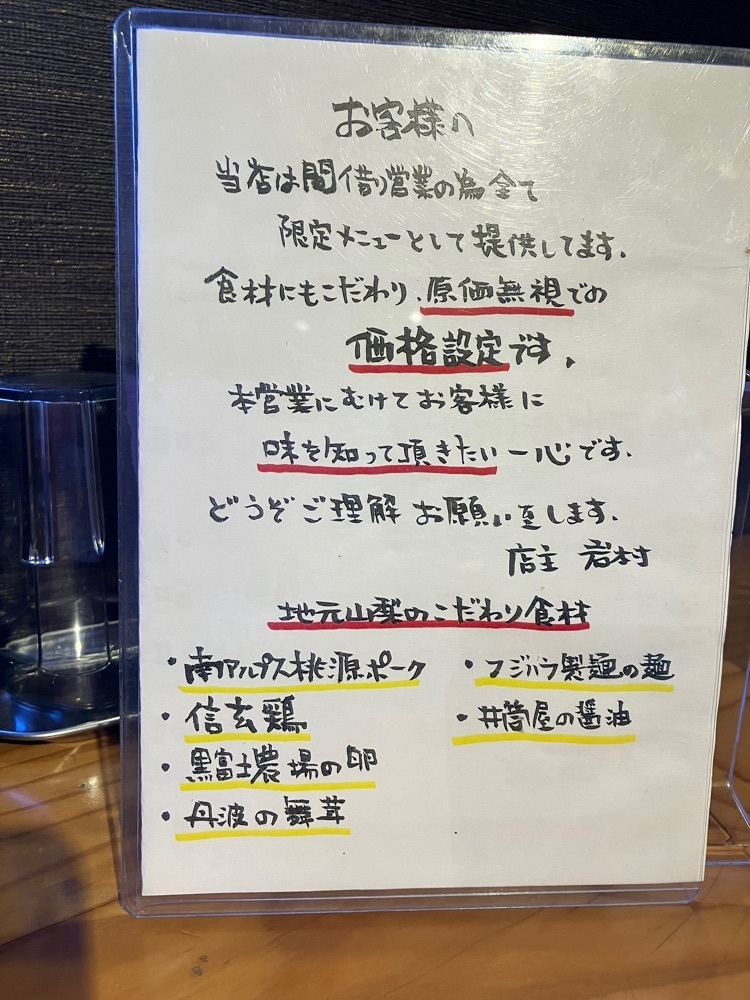 お客様へ
当店は間借り営業の為全て
限定メニューとして提供してます。
食材にもこだわり、原価無視での
価格設定です。
本営業にむけてお客様に
味を知って頂きたい一心です。
どうぞご理解お願い致します。
店主 岩村
地元山梨のこだわり食材
・南アルプス桃源ポーク
・信玄鶏
・黒富士農場の卵
・丹波の舞茸
・フジハラ製麺の麺
・井筒屋の醤油